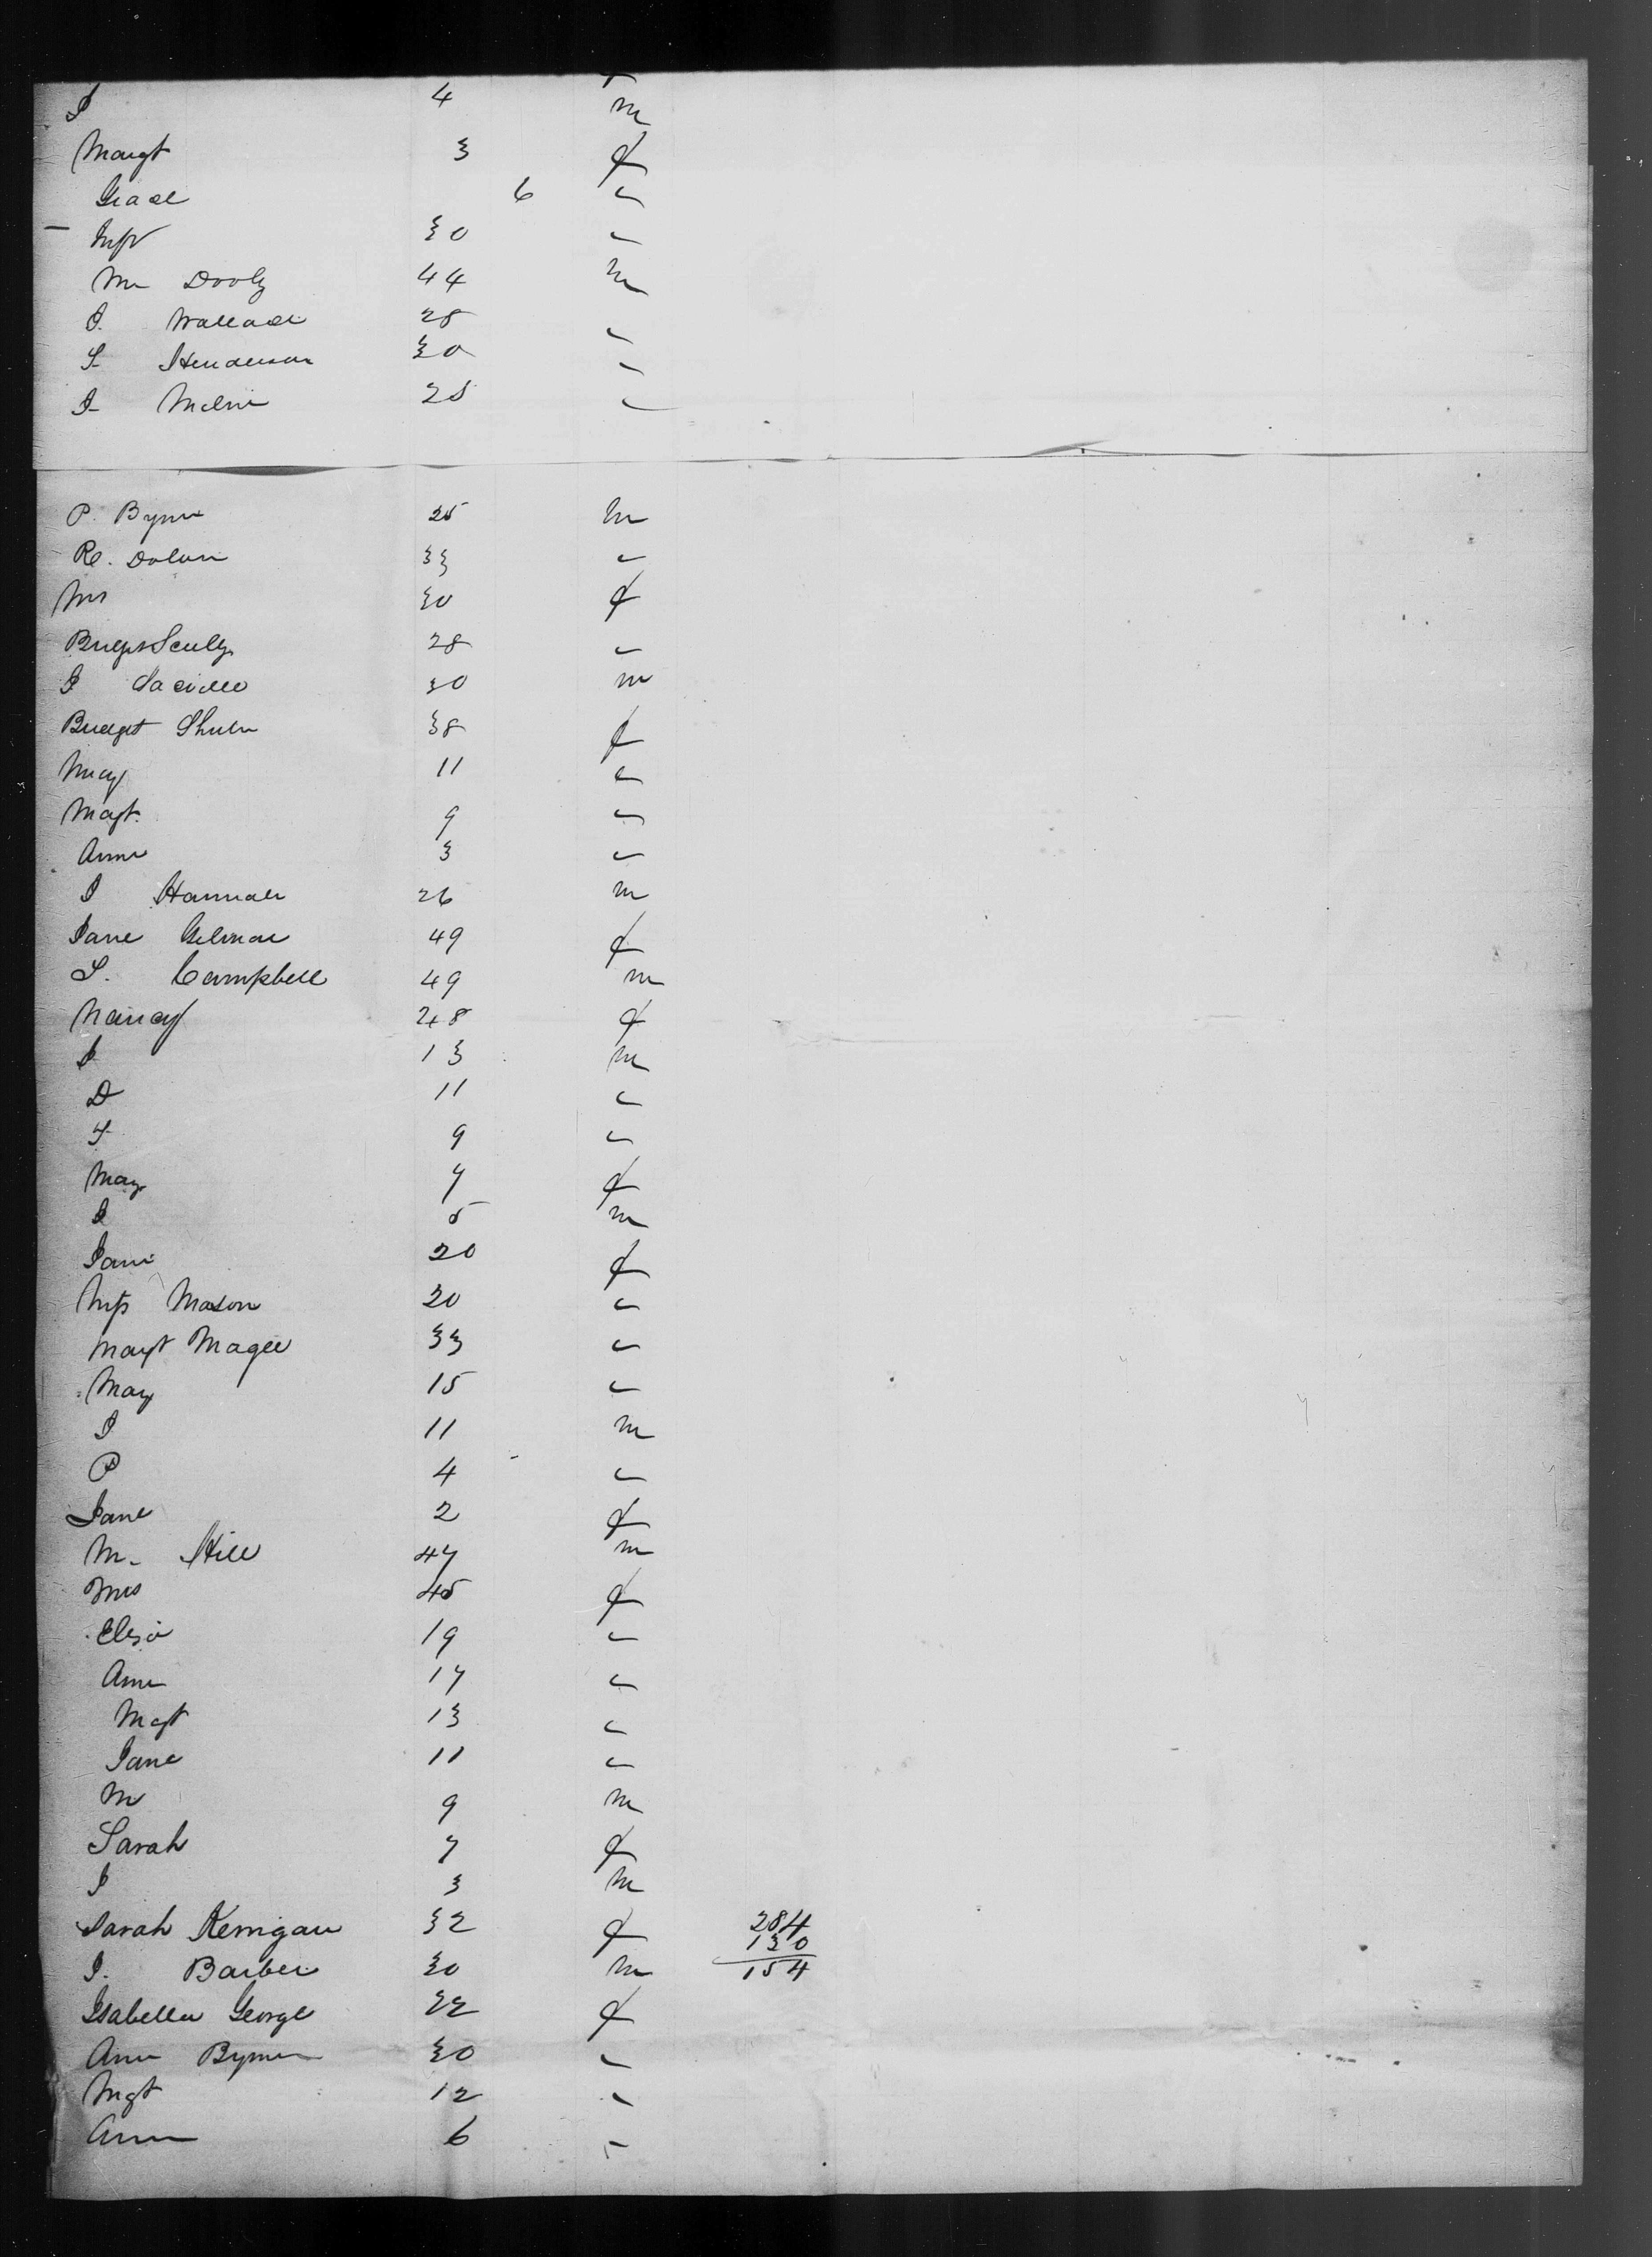 J 4 m
Margt 3 f
Grace 6 "
30 "
Mr Dooly 44 m
J. Wallace 28 "
S Henderson 30 "
J 28 "
P. Byrne 25 m
R. Dolan 33 "
Mrs 30 f
Scully 28 "
J 30 m
Bridget 38 f
Mary 11 "
Magt. 9 "
Anne 3 "
J Hannah 26 m
Jane Gilmore 49 f
S. Campbell 49 m
Nancy 48 f
J 13 m
D 11 "
9 "
Mary 7 f
J 5 m
Jane 20 f
Miss Mason 20 "
Margt Magee 33 "
Mary 15 "
J 11 m
P 4 "
Jane 2 f
M. Hill 47 m
Mrs 45 f
Eliza 19 "
Ann 17 "
Magt 13 "
Jane 11 "
M 9 m
Sarah 7 f
J 3 m
Sarah Kerrigan 32 f 284
J. Barber 30 m 130
154
Isabella George 22 f
Ann Byrne 30 "
Mgt 12 "
Ann 6 "